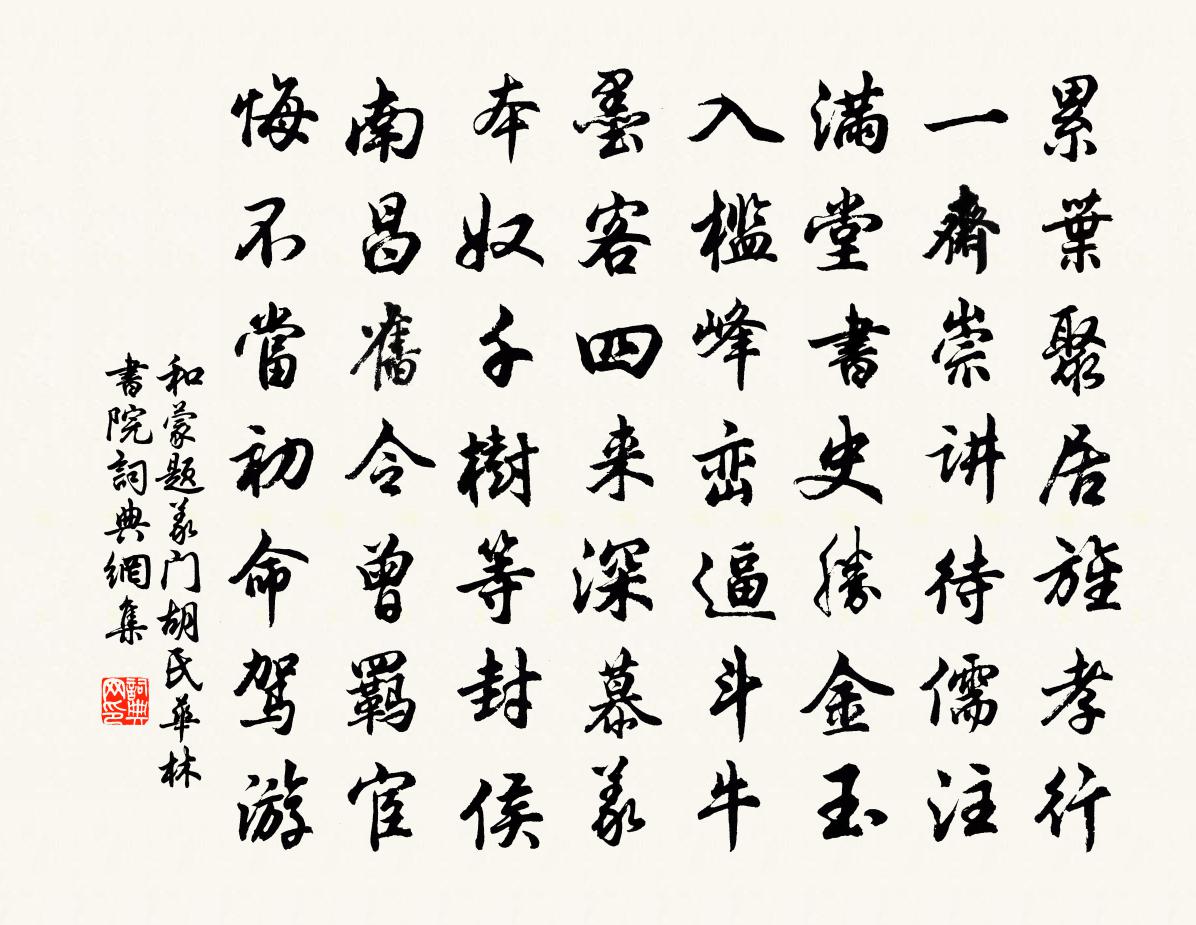 累葉聚居旌孝行
一齋崇讲待儒注
滿堂書史勝金玉
入檻峰峦逼斗牛
墨客四来深慕義
本奴千樹等封侯
南昌舊令曾羈宦
悔不當初命驾游
和蒙题義门胡氏華林
書院詞典網集
詞典网印